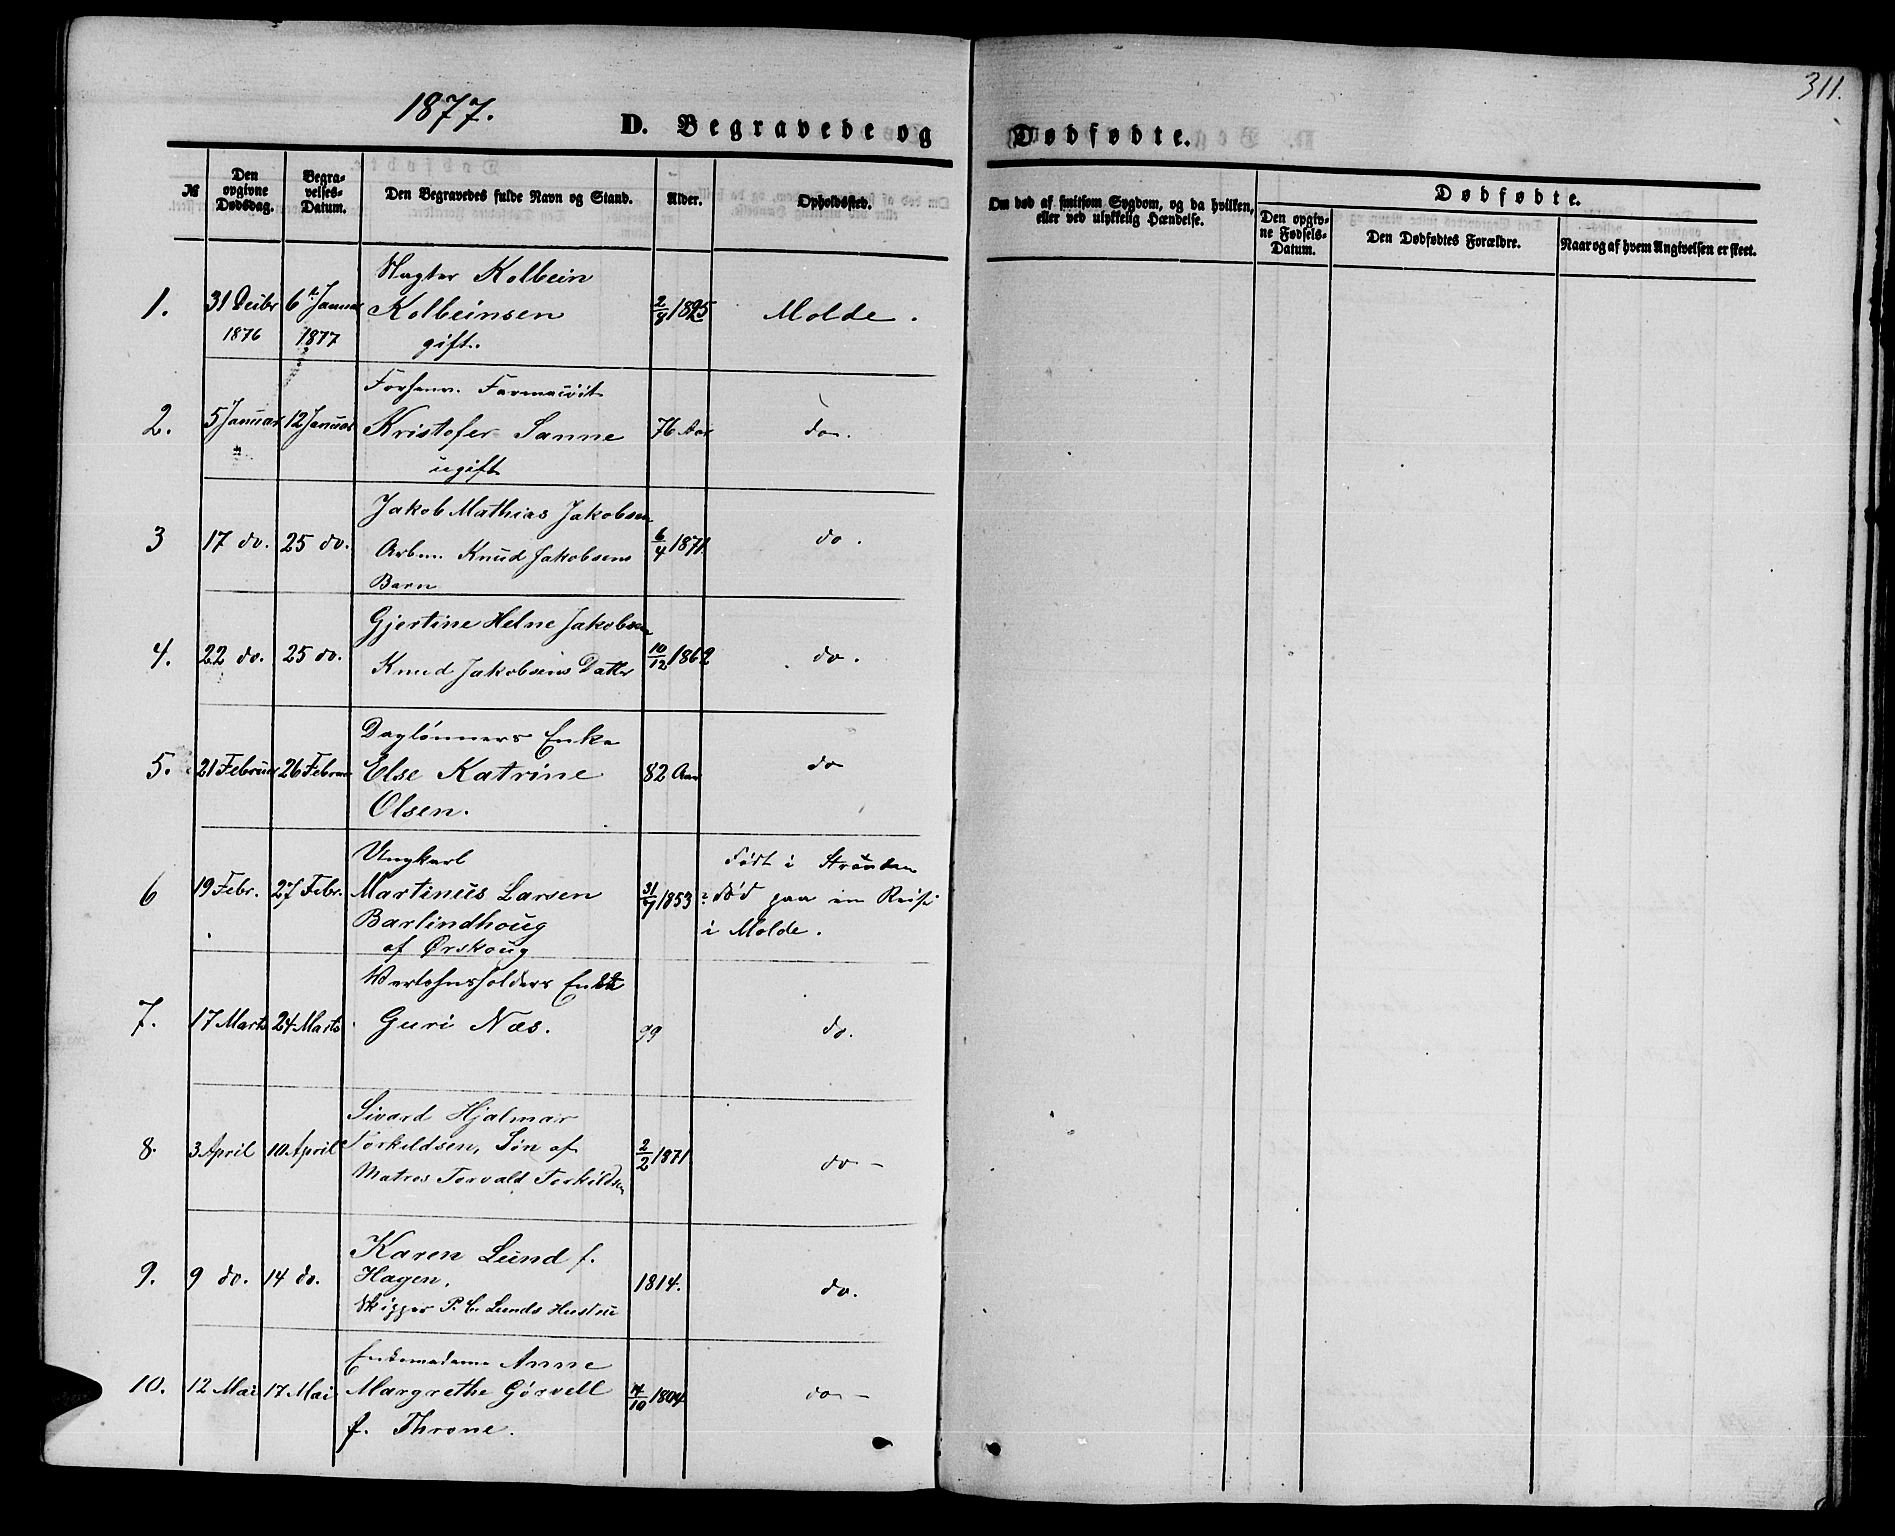 311.
1877.
D. Begravede og Dødfødte.
№
Den opgivne Dødsdag.
Begravelses-Datum.
Den Begravedes fulde Navn og Stand.
Alder.
Opholdssted.
Om død af smitsom Sygdom, og da hvilken, eller ved ulykkelig Hændelse.
Dødfødte.
Den opgivne Fødsels-Datum.
Den Dødfødtes Forældre.
Naar og af hvem Angivelsen er skeet.
Kolbein
1. 31 Decbr 6te Januar Kolbeinsen 2/8 1825 Molde.
1876 1877 gift.
Forhenv. Farmaceut
2. 5 Januar 12 Januar Kristofer Sanne 76 Aar do.
ugift
Jakob Mathias Jakobsen
3 17 do. 25 do. Arbm. Knud Jakobsens 6/4 1871. do.
Barn
Gjertine Helne Jakobsen
4. 22 do. 25 do. Knud Jakobsens Datter 10/12 1862 do.
Daglønners Enke
5. 21 Februar 26 Februar Else Katrine 82 Aar do
Olsen.
Ungkarl Født i Stranden
6 19 Febr. 27 Febr. Martinus Larsen 31/7 1853 død paa en Reise
Barlindhoug i Molde.
af Ørskoug
Værtshusholders Enke
7. 17 Marts 24 Marts Guri Næs. 99 do.
Sivard Hjalmar
8. 3 April 10 April Torkildsen, Søn af 2/2 1871 do
Matros Torvald Torkildsen
Karen Lund f.
9. 9 do. 14 do. Hagen, 1814. do.
Skipper P. C. Lunds Hustru
Enkemadame Anne
10. 12 Mai 17 Mai Margrethe Gørvell 14/10 1804 do
f. Throne.